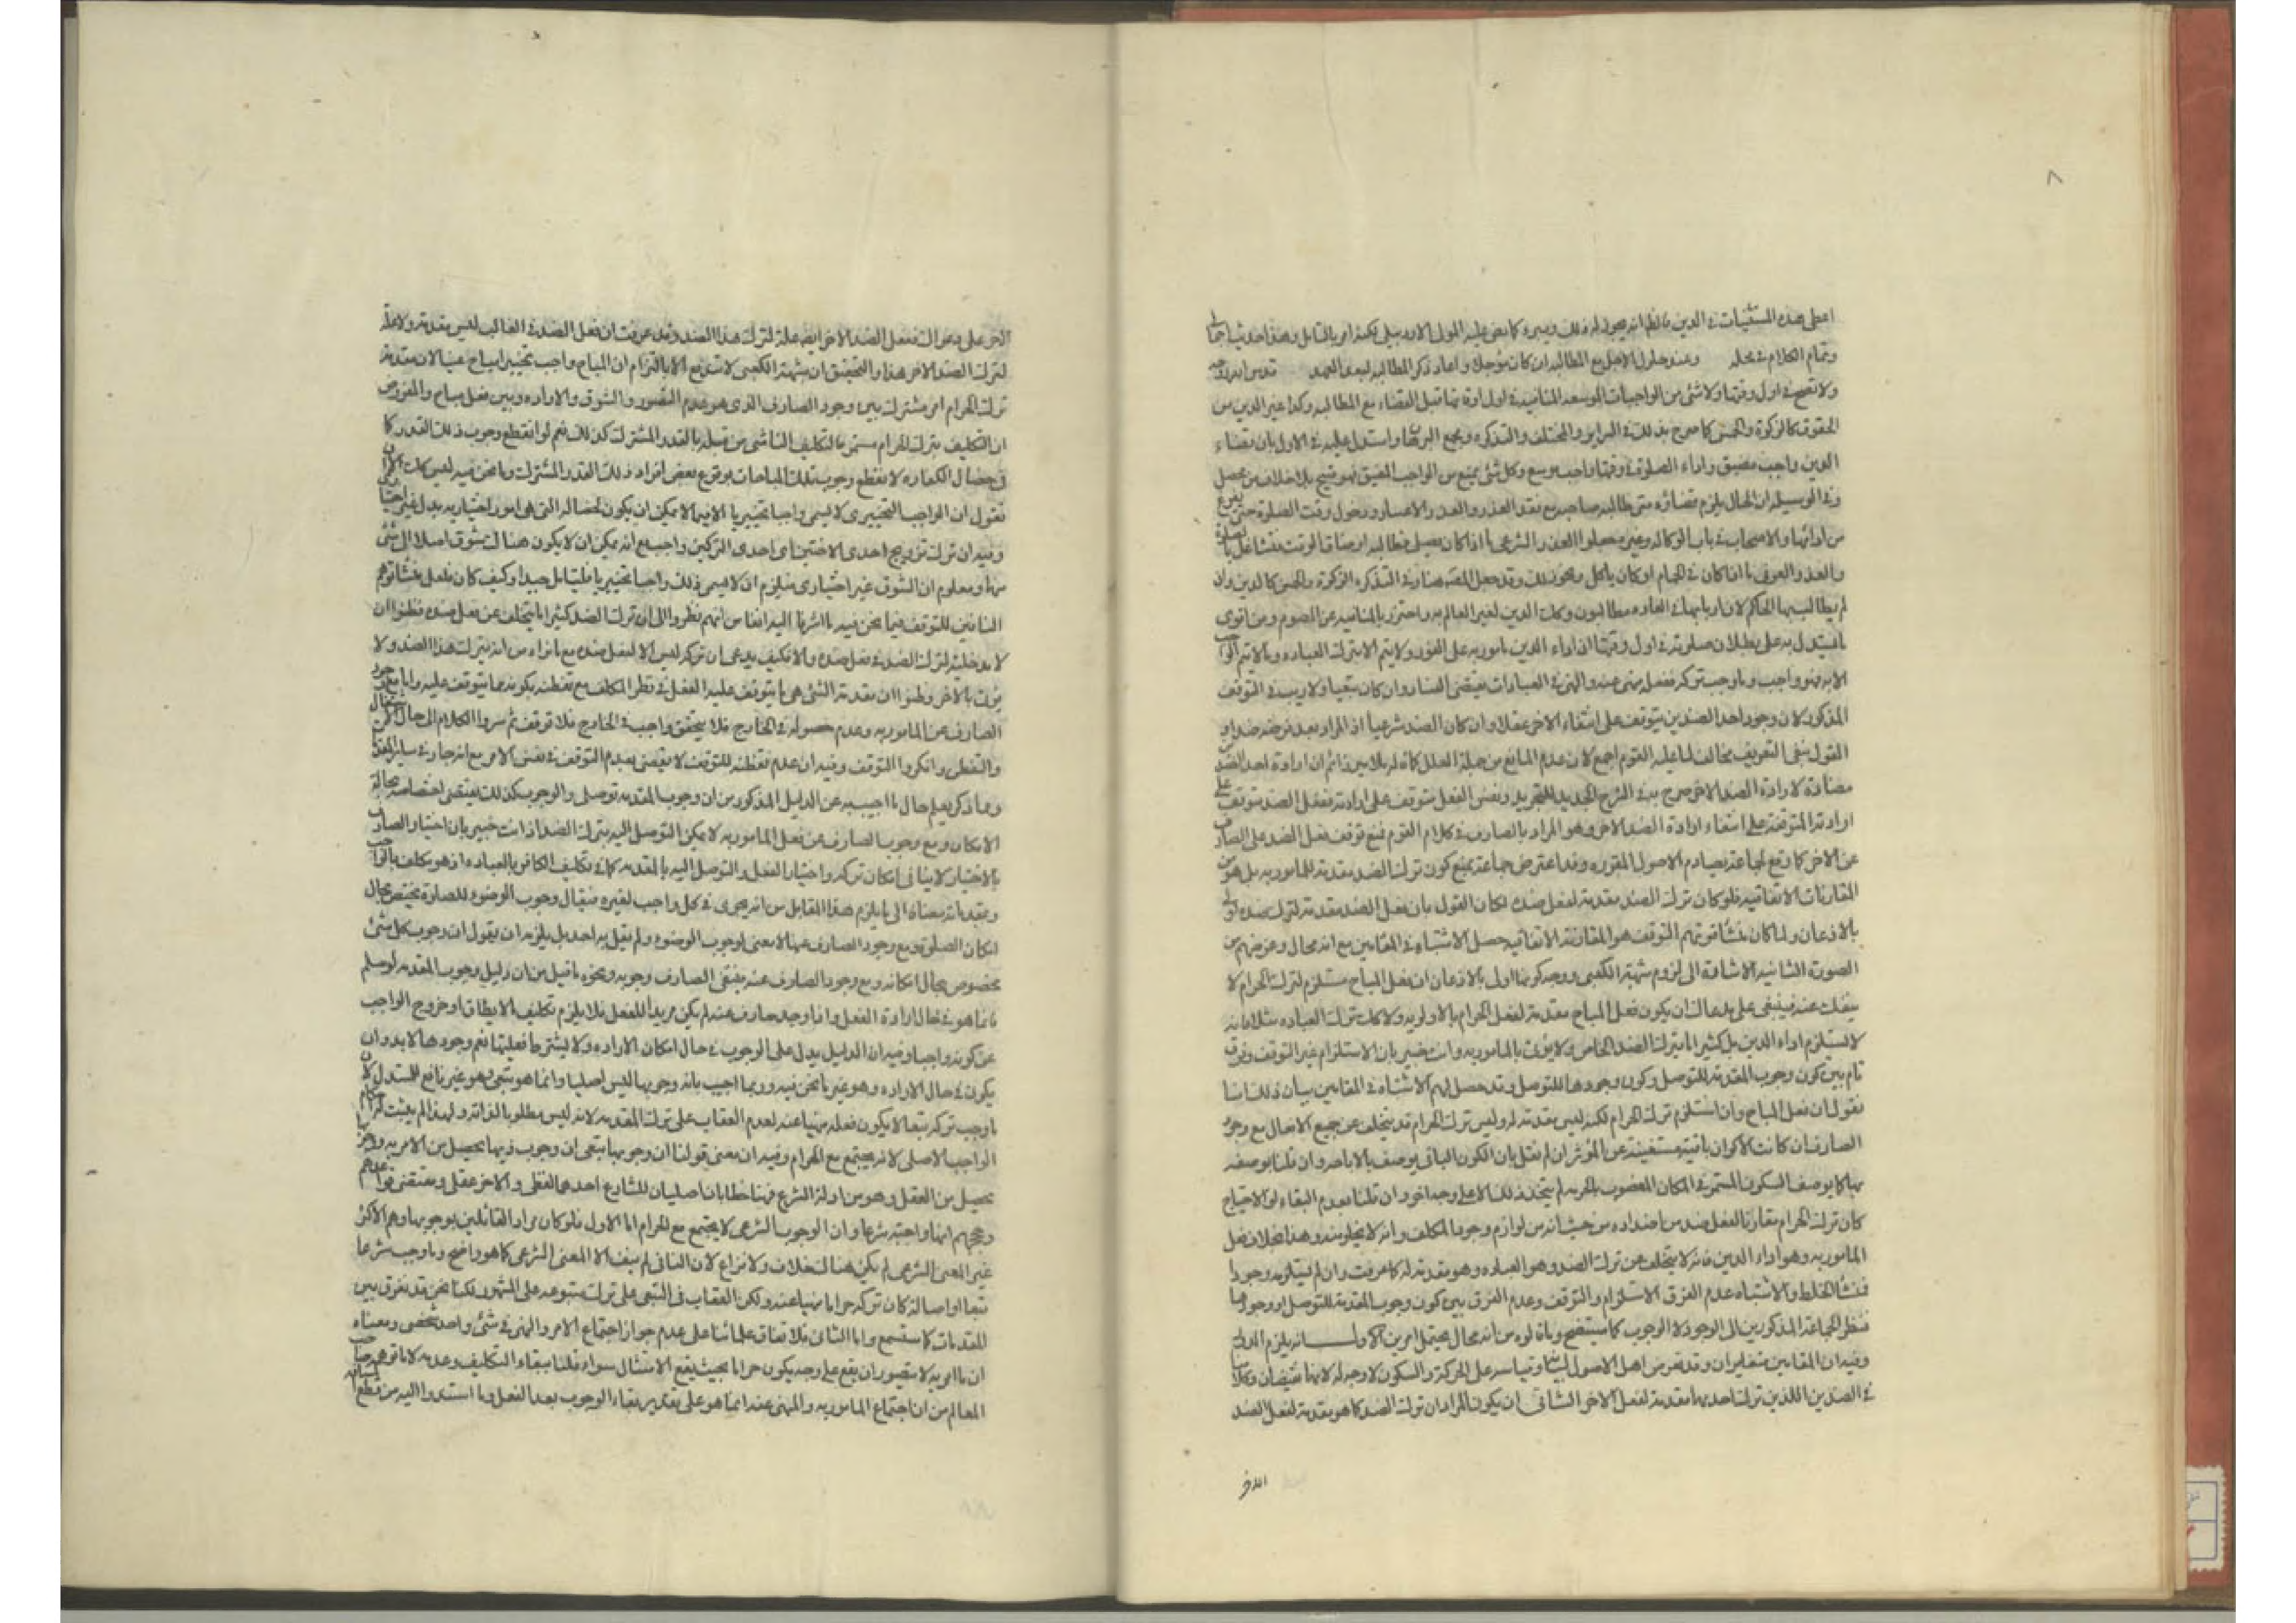 ٨
اعطى هذه المستثنيات في الدين فالظم انه يجوز له ذلك وغيره كما نص عليه المولى الاردبيلي
وتمام الكلام في محله وعند حلول الاجل مع المطالبه ان كان مؤجلا واعاد ذكر المطالبه لبعد العهد
ولا تصح في اول وقتها ولا شئ من الواجبات الموسعه المنافيه في اول اوقاتها قبل القضاء مع المطالبه وكذا غير الدين من
الحقوق كالزكوة والخمس كما صرح بذلك في السراير والمختلف والتذكره ومجمع البرهان واستدل عليه في الاول بان قضاء
الدين واجب مضيق واداء الصلوة في وقتها واجب موسع وكل شئ يمنع من الواجب المضيق فهو قبيح بلا خلاف من محصل
وفي الوسيله ان الحال يلزم قضاؤه متى طالبه صاحبه مع فقد العذر والاعسار ودخول وقت الصلوة حتى يفرغ
من ادائها والاصحاب في باب الوكاله وغيره جعلوا العذر الشرعى ما اذا كان يصلى فطالبه او ضاق الوقت فتشاغل بالصلوة
والعذر العرفى ما اذا كان في الحمام او كان ياكل ونحو ذلك وقد جعل المصنف هنا وفي التذكره الزكوة والخمس كالدين وان
لم يطالب بها الحاكم لان اربابها في العاده مطالبون وكذا الدين لغير العالم به واحترز بالمنافيه عن الصوم ومن اقوى
ما يستدل به على بطلان صلوته في اول وقتها ان اداء الدين مامور به على الفور ولا يتم الا بترك العباده وما لا يتم الواجب
الا به فهو واجب وما وجب تركه ففعله منهى عنه والنهى في العبادات يقتضى الفساد وان كان تبعيا ولا ريب في التوقف
المذكور لان وجود احد الضدين يتوقف على انتفاء الاخر عقلا وان كان الضد شرعيا اذ المراد بعد فرضه ضدا و
القول بنفى التوقف مخالف لما عليه القوم اجمع لان عدم المانع من جملة العلل
مضادة لارادة الضد الاخر صرح به في الشرح الجديد للتجريد ونفس الفعل متوقف على ارادته ففعل الضد متوقف على
ارادته المتوقفة على انتفاء ارادة الضد الاخر وهو المراد بالصارف في كلام القوم فمنع توقف فعل الضد على الصارف
عن الاخر كما وقع لجماعة يصادم الاصول المقرره وقد اعترض جماعة بمنع كون ترك الضد مقدمة للمامور به بل هو من
المقارنات الاتفاقيه فلو كان ترك الضد مقدمة لفعل ضده لكان القول بان فعل الضد مقدمة لترك ضده اولى
بالاذعان ولما كان منشا توهم التوقف هو المقارنة الاتفاقيه حصل الاشتباه في المقامين مع انه محال وغرضهم من
الصورة الثانيه الاشارة الى لزوم شبهة الكعبى ووجه كونها اولى بالاذعان ان فعل المباح مستلزم لترك الحرام لا
ينفك عنه فينبغى على مدعاك ان يكون فعل المباح مقدمة لفعل الحرام بالاولويه ولا كك ترك العباده مثلا فانه
لا يستلزم اداء الدين بل كثيرا ما يترك الضد الخاص ولا يؤتى بالمامور به وانت خبير بان الاستلزام غير التوقف وفرق
تام بين كون وجوب المقدمة للتوصل وكون وجودها للتوصل وقد حصل لهم الاشتباه في المقامين بيان ذلك انا
نقول ان فعل المباح وان استلزم ترك الحرام لكنه ليس مقدمة له وليس ترك الحرام قد يتخلف عن جميع الافعال مع وجود
الصارف ان كانت الاكوان باقية مستغنية عن المؤثر ان لم نقل بان الكون الباقى يوصف بالاباحه وان قلنا بوصفه
بها كما يوصف السكون المستمر في المكان المغصوب بالحرمه لم يتخذ ذلك الا على وجه اخر وان قلنا بعدم البقاء او الاحتياج
كان ترك الحرام مقارنا لفعل ضد من اضداده من حيث انه من لوازم وجود المكلف وانه لا يخلو منه وهذا بخلاف فعل
المامور به وهو اداء الدين فانه لا يتخلف عن ترك الضد وهو العباده وهو مقدمة له كما عرفت وان لم يستلزمه وجودا
فمنشا الخلط والاشتباه عدم الفرق الاستلزام والتوقف وعدم الفرق بين كون وجوب المقدمة للتوصل او وجودها
فنظر الجماعة المذكورين الى الوجود لا الوجوب كما سيتضح وما قالوه من انه محال يحتمل امرين الاول انه يلزم الدور
وفيه ان المقامين متغايران وقد تعرض اهل الاصول لبيانه وقياسه على الحركة والسكون لا وجه له لانهما نقيضان وكلامنا
في الضدين اللذين ترك احدهما مقدمة لفعل الاخر الثانى ان يكون المراد ان ترك الضد كما هو مقدمة لفعل الضد
الاخر
الاخر على دعواك ففعل الضد الاخر ايضا علة لترك هذا الضد وقد عرفت ان فعل الضد في الغالب ليس مقدمة ولا علة
لترك الضد الاخر هذا والتحقيق ان شبهة الكعبى لا تندفع الا بالتزام ان المباح واجب تخييرا مباح عينا لان مقدمة
ترك الحرام امر مشترك بين وجود الصارف الذى هو عدم التصور والشوق والاراده وبين فعل مباح والمفروض
ان التكليف بترك الحرام مستمر فالتكليف الناشى من قبله بالقدر المشترك كذلك نعم لو انقطع وجوب ذلك القدر كما
في خصال الكفاره لانقطع وجوب تلك المباحات بوقوع بعض افراد ذلك القدر المشترك وما نحن فيه ليس كك الا ان
نقول ان الواجب التخييرى لا يسمى واجبا تخييريا الا فيما لا يمكن ان يكون لخصاله التى هى امور اختياريه بدل غير اختيارى
وفيه ان ترك تزويج احدى الاختين اى احدى التركين واجب مع انه يمكن ان لا يكون هناك تشوق اصلا الى شئ
منها ومعلوم ان الشوق غير اختيارى فيلزم ان لا يسمى ذلك واجبا تخييريا فليتامل جيدا وكيف كان فلعل منشا توهم
النافين للتوقف فيما نحن فيه ما اشرنا اليه انفا من انهم نظروا الى ان ترك الضد كثيرا ما يتخلف عن فعل ضده فظنوا ان
لا مدخلية لترك الضد في فعل ضده والا فكيف يدعى ان تركه ليس الا لفعل ضده مع ما نراه من انه يترك هذا الضد ولا
يؤت بالاخر وظنوا ان مقدمة الشئ هى ما يتوقف عليه الفعل في نظر المكلف مع تفطنه بكونه مما يتوقف عليه واما مع وجود
الصارف عن المامور به وعدم حصوله في الخارج فلا يتحقق واجب في الخارج فلا توقف ثم سروا الكلام الى حال
والتفطن وانكروا التوقف وفيه ان عدم تفطنه للتوقف لا يقضى بعدم التوقف في نفس الامر مع انه جار في ساير المقدمات
ومما ذكر يعلم حال ما اجيب به عن الدليل المذكور من ان وجوب المقدمه توصلى والوجوب كذلك يقتضى اختصاصه بحالة
الامكان ومع وجوب الصارف عن فعل المامور به لا يمكن التوصل اليه بترك الضد اذ انت خبير بان اختيار الصارف
بالاختيار لا ينافى امكان تركه واختيار الفعل والتوصل اليه بالمقدمه كما في تكليف الكافر بالعباده اذ هو مكلف بالواجب
الى ما يلزم هذا القايل من انه يجرى في كل واجب لغيره فيقال وجوب الوضوء للصلوة يختص بحال
امكان الصلوة ومع وجود الصارف عنها لا معنى لوجوب الوضوء ولم يقل به احد بل يلزمه ان يقول ان وجوب كل شئ
مخصوص بحال امكانه ومع وجود الصارف عنه ينتفى الصارف وجوبه ونحوه ما قيل من ان دليل وجوب المقدمه لو سلم
فانما هو في حال ارادة الفعل واذا وجد صارف عنه لم يكن مريدا للفعل فلا يلزم تكليف ما لا يطاق او خروج الواجب
عن كونه واجبا وفيه ان الدليل يدل على الوجوب في حال امكان الاراده ولا يشترط فعليتها نعم وجودها لابد وان
يكون في حال الاراده وهو غير ما نحن فيه وربما اجيب بانه وجوبها ليس اصليا وانما هو تبعى وهو غير نافع للمستدل لان
ما وجب تركه تبعا لا يكون فعله منهيا عنه لعدم العقاب على ترك المقدمه لانه ليس مطلوبا لذاته ولهذا لم يثبت له احكام
الواجب الاصلى لانه يجتمع مع الحرام وفيه ان معنى قولنا ان وجوبها تبعى ان وجوب ذيها يحصل من الامر به ووجوبها
يحصل من العقل وهو من ادلة الشرع فهنا خطابان اصليان للشارع احدهما لفظى والاخر عقلى ومقتضى قواعدهم
وحججهم انها واجبة شرعا وان الوجوب الشرعى لا يجتمع مع الحرام اما الاول فلو كان مراد القائلين بوجوبها وهم الاكثر
غير المعنى الشرعى لم يكن هناك خلاف ولا نزاع لان النافى لم ينف الا المعنى الشرعى كما هو واضح وما وجب شرعا
تبعا او اصالة كان تركه حراما منهيا عنه ولكن العقاب في التبعى على ترك متبوعه على المشهور لكنا نحن قد نفرق بين
المقدمات كما ستسمع واما الثانى فلاتفاق علمائنا على عدم جواز اجتماع الامر والنهى في شئ واحد شخصى ومعناه
ان ما امر به لا يتصور ان يقع على وجه يكون حراما بحيث يقع الامتثال سواء قلنا ببقاء التكليف وعدمه لا ما توهم صاحب
المعالم من ان اجتماع المامور به والمنهى عنه انما هو على تقدير بقاء الوجوب بعد الفعل وما استند اليه من قطع